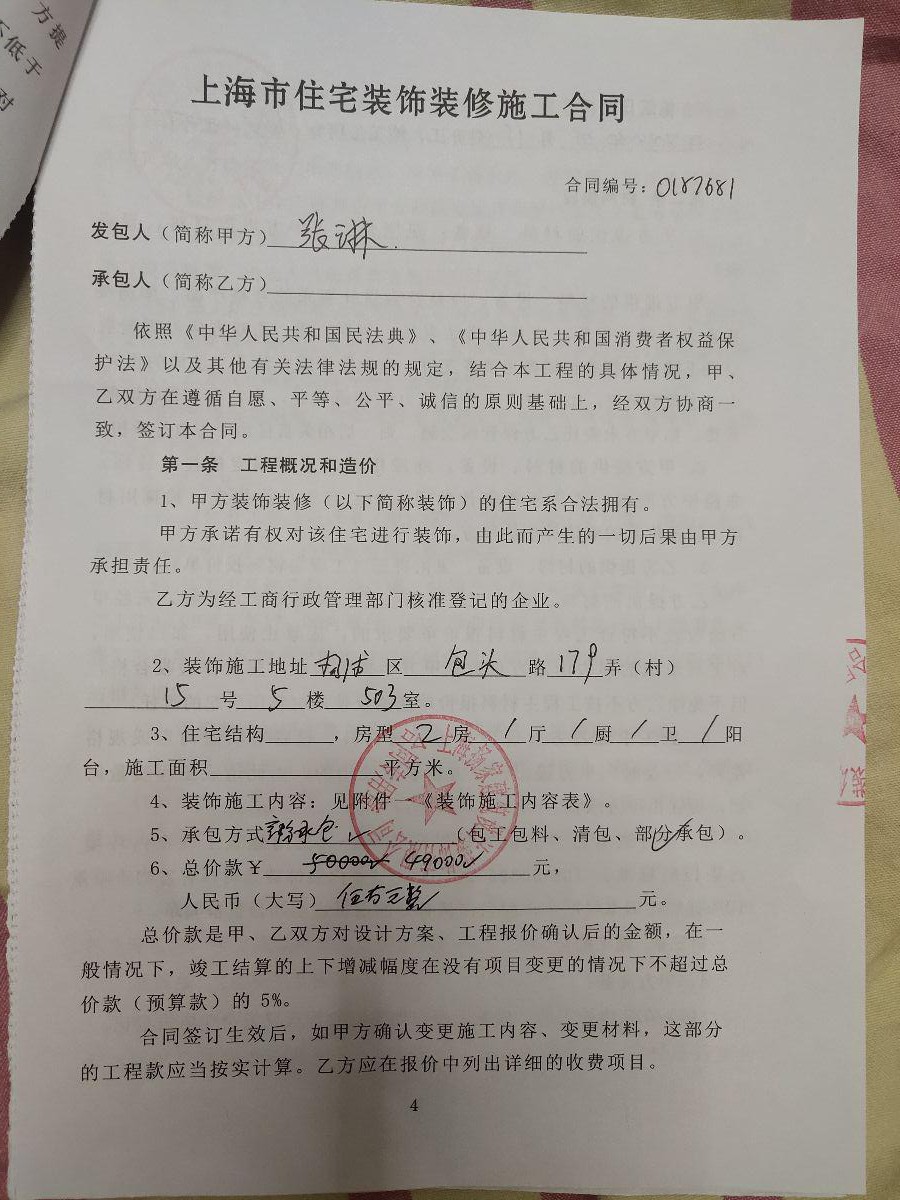 方提
不低于
对
上海市住宅装饰装修施工合同
合同编号：0187681
发包人（简称甲方）张琳
承包人（简称乙方）
依照《中华人民共和国民法典》、《中华人民共和国消费者权益保
护法》以及其他有关法律法规的规定，结合本工程的具体情况，甲、
乙双方在遵循自愿、平等、公平、诚信的原则基础上，经双方协商一
致，签订本合同。
第一条 工程概况和造价
1、甲方装饰装修（以下简称装饰）的住宅系合法拥有。
甲方承诺有权对该住宅进行装饰，由此而产生的一切后果由甲方
承担责任。
乙方为经工商行政管理部门核准登记的企业。
2、装饰施工地址 区 包头 路 179 弄（村）
15 号 5 楼 503 室。
3、住宅结构 ，房型 2 房 / 厅 / 厨 / 卫 / 阳
台，施工面积 平方米。
4、装饰施工内容：见附件一《装饰施工内容表》。
5、承包方式 部分承包 ✓（包工包料、清包、部分承包）。
6、总价款￥ 50000 49000 元，
人民币（大写） 伍万元整 元。
总价款是甲、乙双方对设计方案、工程报价确认后的金额，在一
般情况下，竣工结算的上下增减幅度在没有项目变更的情况下不超过总
价款（预算款）的 5%。
合同签订生效后，如甲方确认变更施工内容、变更材料，这部分
的工程款应当按实计算。乙方应在报价中列出详细的收费项目。
4